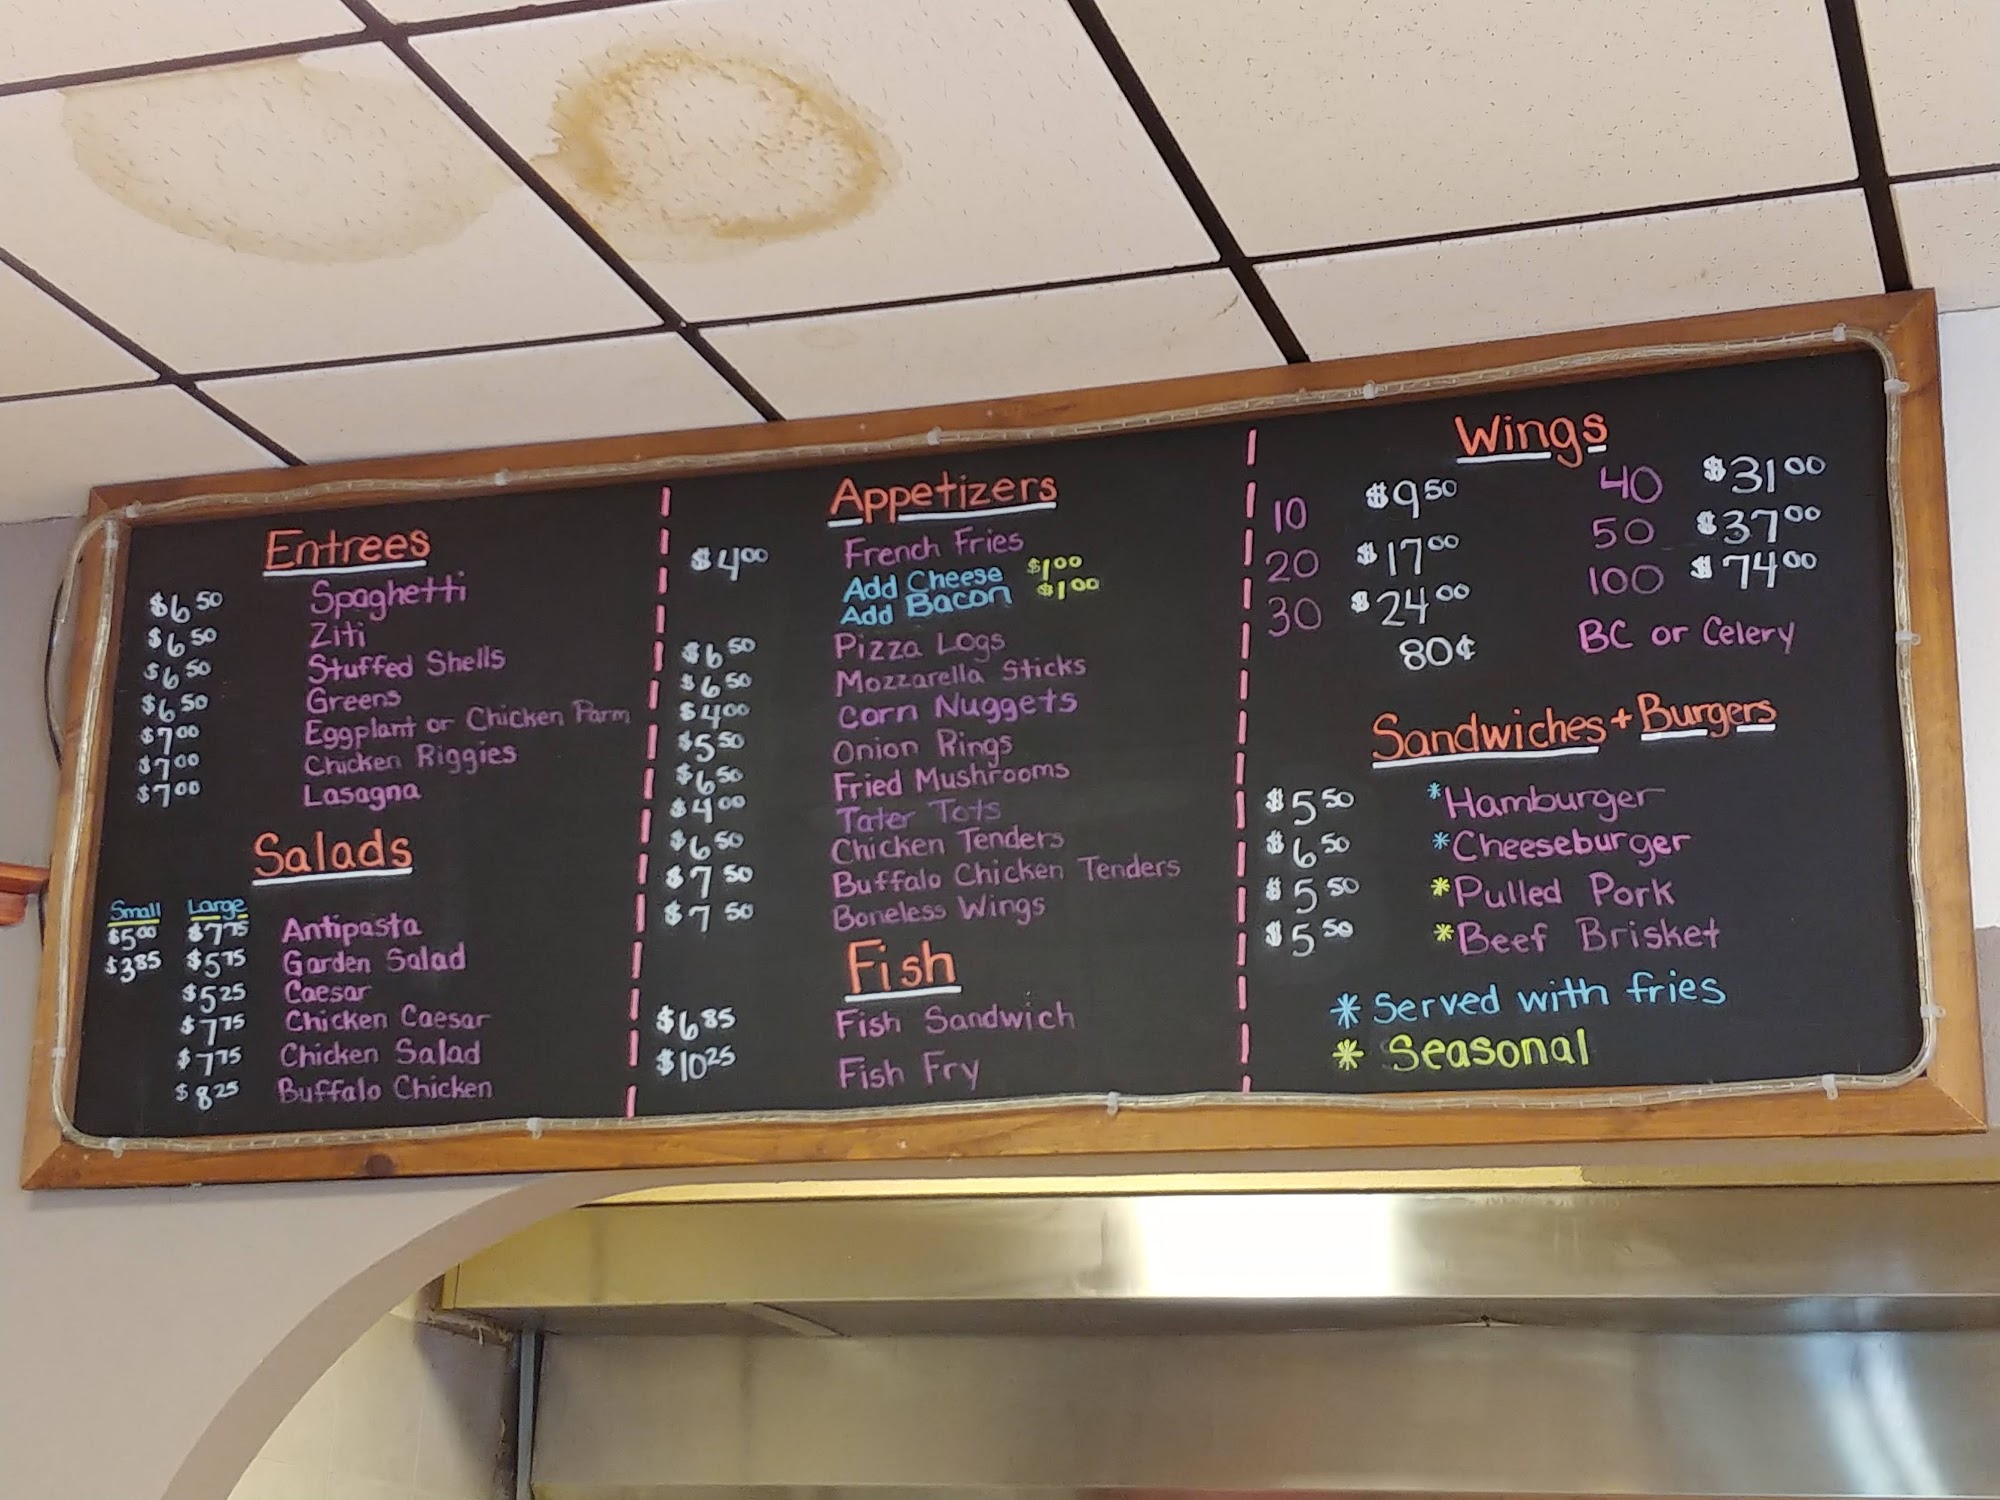 Entrees
$6.50 Spaghetti
$6.50 Ziti
$6.50 Stuffed Shells
$6.50 Greens
$7.00 Eggplant or Chicken Parm
$7.00 Chicken Riggies
$7.00 Lasagna
Salads
Small Large
$5.00 $7.75 Antipasta
$3.85 $5.75 Garden Salad
$5.25 Caesar
$7.75 Chicken Caesar
$7.75 Chicken Salad
$8.25 Buffalo Chicken
Appetizers
$4.00 French Fries
Add Cheese $1.00
Add Bacon $1.00
$6.50 Pizza Logs
$6.50 Mozzarella Sticks
$4.00 Corn Nuggets
$5.50 Onion Rings
$6.50 Fried Mushrooms
$4.00 Tater Tots
$6.50 Chicken Tenders
$7.50 Buffalo Chicken Tenders
$7.50 Boneless Wings
Fish
$6.85 Fish Sandwich
$10.25 Fish Fry
Wings
10 $9.50 40 $31.00
20 $17.00 50 $37.00
30 $24.00 100 $74.00
80¢ BC or Celery
Sandwiches + Burgers
$5.50 *Hamburger
$6.50 *Cheeseburger
$5.50 *Pulled Pork
$5.50 *Beef Brisket
* Served with fries
* Seasonal